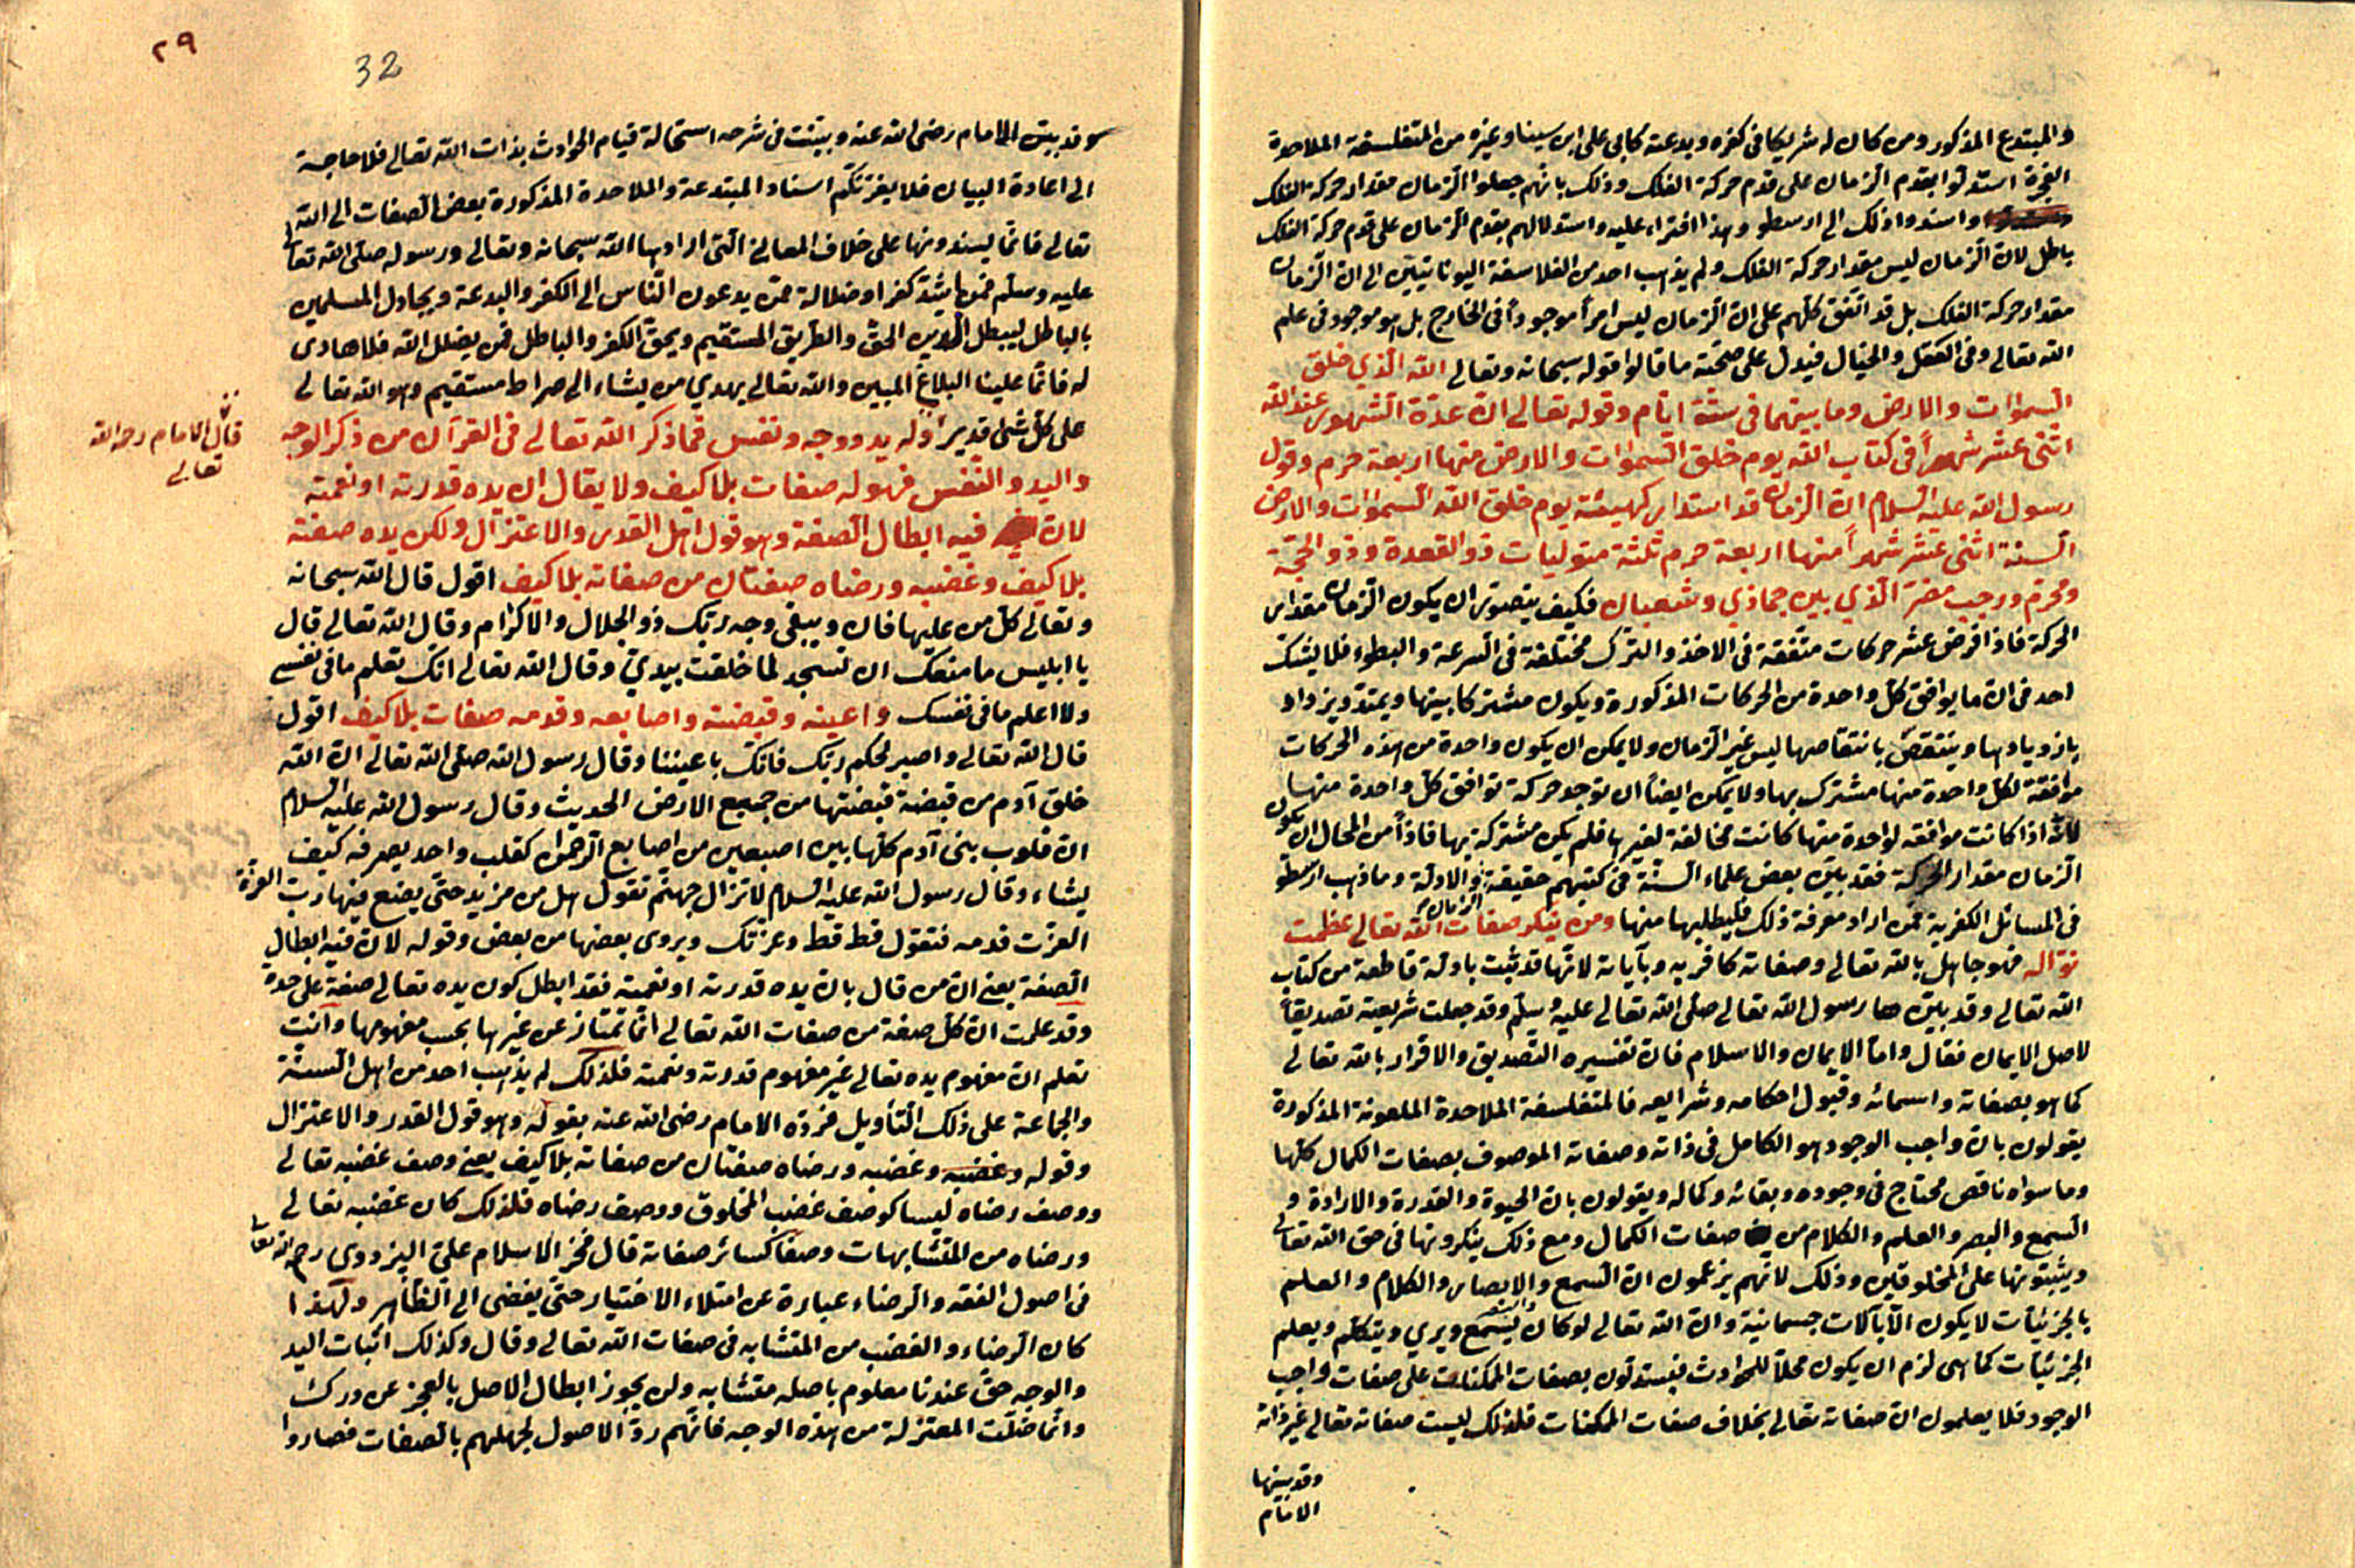 والمبتدع المذكور ومن كان له شريكا في كفره وبدعته كابي علي ابن سينا وغيره من المتفلسفة الملاحدة
الفجرة استدلوا بقدم الزمان على قدم حركة الفلك وذلك بانهم جعلوا الزمان مقدار حركة الفلك
واسندوا ذلك الى ارسطو وهذا افتراء عليه واستدلالهم بقدم الزمان على قدم حركة الفلك
باطل لان الزمان ليس مقدار حركة الفلك ولم يذهب احد من الفلاسفة اليونانيين الى ان الزمان
مقدار حركة الفلك بل قد اتفق كلهم على ان الزمان ليس امرأ موجودأ في الخارج بل هو موجود في علم
الله تعالى وفي العقل والخيال فيدل على صحة ما قالوا قوله سبحانه وتعالى الله الذي خلق
السموات والارض وما بينهما في ستة ايام وقوله تعالى ان عدة الشهور عند الله
اثنى عشر شهرأ في كتاب الله يوم خلق السموات والارض منها اربعة حرم وقول
رسول الله عليه السلام ان الزمان قد استدار كهيئته يوم خلق الله السموات والارض
السنة اثنى عشر شهرأ منها اربعة حرم ثلثة متوليات ذو القعدة وذو الحجة
ومحرم ورجب مضر الذي بين جماذي وشعبان فكيف يتصور ان يكون الزمان مقدار
الحركة فاذا فرض عشر حركات متفقة في الاخذ والترك مختلفة في السرعة والبطوء فلا يشك
احد في ان ما يوافق كل واحدة من الحركات المذكورة ويكون مشتركا بينها ويمتد ويزداد
بازديادها وينتقص بانتقاصها ليس غير الزمان ولا يمكن ان يكون واحدة من هذه الحركات
موافقة لكل واحدة منها مشترك بها ولا يمكن ايضأ ان توجد حركة توافق كل واحدة منها
لانه اذا كانت موافقه لواحدة منها كانت مخالفة لغيرها فلم يكن مشتركة بها فاذأ من المحال ان يكون
الزمان مقدار الحركة فقد بين بعض علماء السنة في كتبهم حقيقة الزمان والادلة وما ذهب ارسطو
في المسائل الكفرية فمن اراد معرفة ذلك فليطلبها منها ومن ينكر صفات الله تعالى عظمت
نواله فهو جاهل بالله تعالى وصفاته كافر به وبآياته لانها قد ثبت بادلة قاطعة من كتاب
الله تعالى وقد بين ها رسول الله تعالى صلى الله تعالى عليه وسلم وقد جعلت شريعته تصديقأ
لاصل الايمان فقال واما الايمان والاسلام فان تفسيره التصديق والاقرار بالله تعالى
كما هو بصفاته واسمائه وقبول احكامه وشرايعه فالمتفلسفة الملاحدة الملعونة المذكورة
يقولون بان واجب الوجود هو الكامل في ذاته وصفاته الموصوف بصفات الكمال كلها
وما سواه ناقص محتاج في وجوده وبقائه وكماله ويقولون بان الحيوة والقدرة والارادة و
السمع والبصر والعلم والكلام من صفات الكمال ومع ذلك ينكرونها في حق الله تعالى
ويثبتونها على المخلوقين وذلك لانهم يزعمون ان السمع والابصار والكلام والعلم
بالجزئيات لا يكون الا بآلات جسمانية وان الله تعالى لو كان يسمع ويري ويتكلم ويعلم
الجزئيات كما هي لزم ان يكون محلأ للحوادث فيستدلون بصفات الممكنات على صفات واجب
الوجود فلا يعلمون ان صفاته تعالى بخلاف صفات الممكنات فلذلك ليست صفاته تعالى غير ذاته
وقد بينها
الامام
٢٩
32
وقد بين الامام رضي الله عنه وبينت في شرحه استحالة قيام الحوادث بذات الله تعالى فلا حاجة
الى اعادة البيان فلا يغرنكم اسناد المبتدعة والملاحدة المذكورة بعض الصفات الى الله
تعالى فانما يسندونها على خلاف المعاني التي ارادها الله سبحانه وتعالى ورسوله صلى الله تعالى
عليه وسلم فمن اشد كفرا وضلالة ممن يدعون الناس الى الكفر والبدعة ويجادل المسلمين
بالباطل ليبطل الدين الحق والطريق المستقيم ويحق الكفر والباطل فمن يضلل الله فلا هادى
له فانما علينا البلاغ المبين والله تعالى يهدي من يشاء الى صراط مستقيم وهو الله تعالى
على كل شئ قدير وله يد ووجه ونفس فما ذكر الله تعالى في القرآن من ذكر الوجه
قال الامام رحمه الله
تعالى
واليد والنفس فهو له صفات بلا كيف ولا يقال ان يده قدرته او نعمته
لان فيه ابطال الصفة وهو قول اهل القدر والاعتزال ولكن يده صفته
بلا كيف وغضبه ورضاه صفتان من صفاته بلا كيف اقول قال الله سبحانه
وتعالى كل من عليها فان ويبقى وجه ربك ذو الجلال والاكرام وقال الله تعالى قال
يا ابليس ما منعك ان تسجد لما خلقت بيدي وقال الله تعالى انك تعلم ما في نفسي
ولا اعلم ما في نفسك واعينه وقبضته واصابعه وقدمه صفات بلا كيف اقول
قال الله تعالى واصبر لحكم ربك فانك باعيننا وقال رسول الله صلى الله تعالى ان الله
خلق آدم من قبضة قبضتها من جميع الارض الحديث وقال رسول الله عليه السلام
ان قلوب بنى آدم كلها بين اصبعين من اصابع الرحمن كقلب واحد يصرفه كيف
يشاء وقال رسول الله عليه السلام لا تزال جهنم تقول هل من مزيد حتى يضع فيها رب العزة
العزت قدمه فتقول قط قط وعزتك ويروى بعضها من بعض وقوله لان فيه ابطال
الصفة يعني ان من قال بان يده قدرته او نعمته فقد ابطل كون يده تعالى صفة على حدة
وقد علمت ان كل صفة من صفات الله تعالى انما تمتاز عن غيرها بحسب مفهومها وانت
تعلم ان مفهوم يده تعالى غير مفهوم قدرته ونعمته فلذلك لم يذهب احد من اهل السنة
والجماعة على ذلك التأويل فرده الامام رضي الله عنه بقوله وهو قول القدر والاعتزال
وقوله وغضبه وغضبه ورضاه صفتان من صفاته بلا كيف يعني وصف غضبه تعالى
ووصف رضاه ليسا كوصف غضب المخلوق ووصف رضاه فلذلك كان غضبه تعالى
ورضاه من المتشابهات وصفا كسائر صفاته قال فخر الاسلام على البزدوى رحمه الله تعالى
في اصول الفقه والرضاء عبارة عن امتلاء الاختيار حتى يفضى الى الظاهر ولهذا
كان الرضاء والغضب من المتشابه في صفات الله تعالى وقال وكذلك اثبات اليد
والوجه حق عندنا معلوم باصله متشابه ولن يجوز ابطال الاصل بالعجز عن درك
وانما ضلت المعتزلة من هذه الوجه فانهم ردوا الاصول لجهلهم بالصفات فصاروا